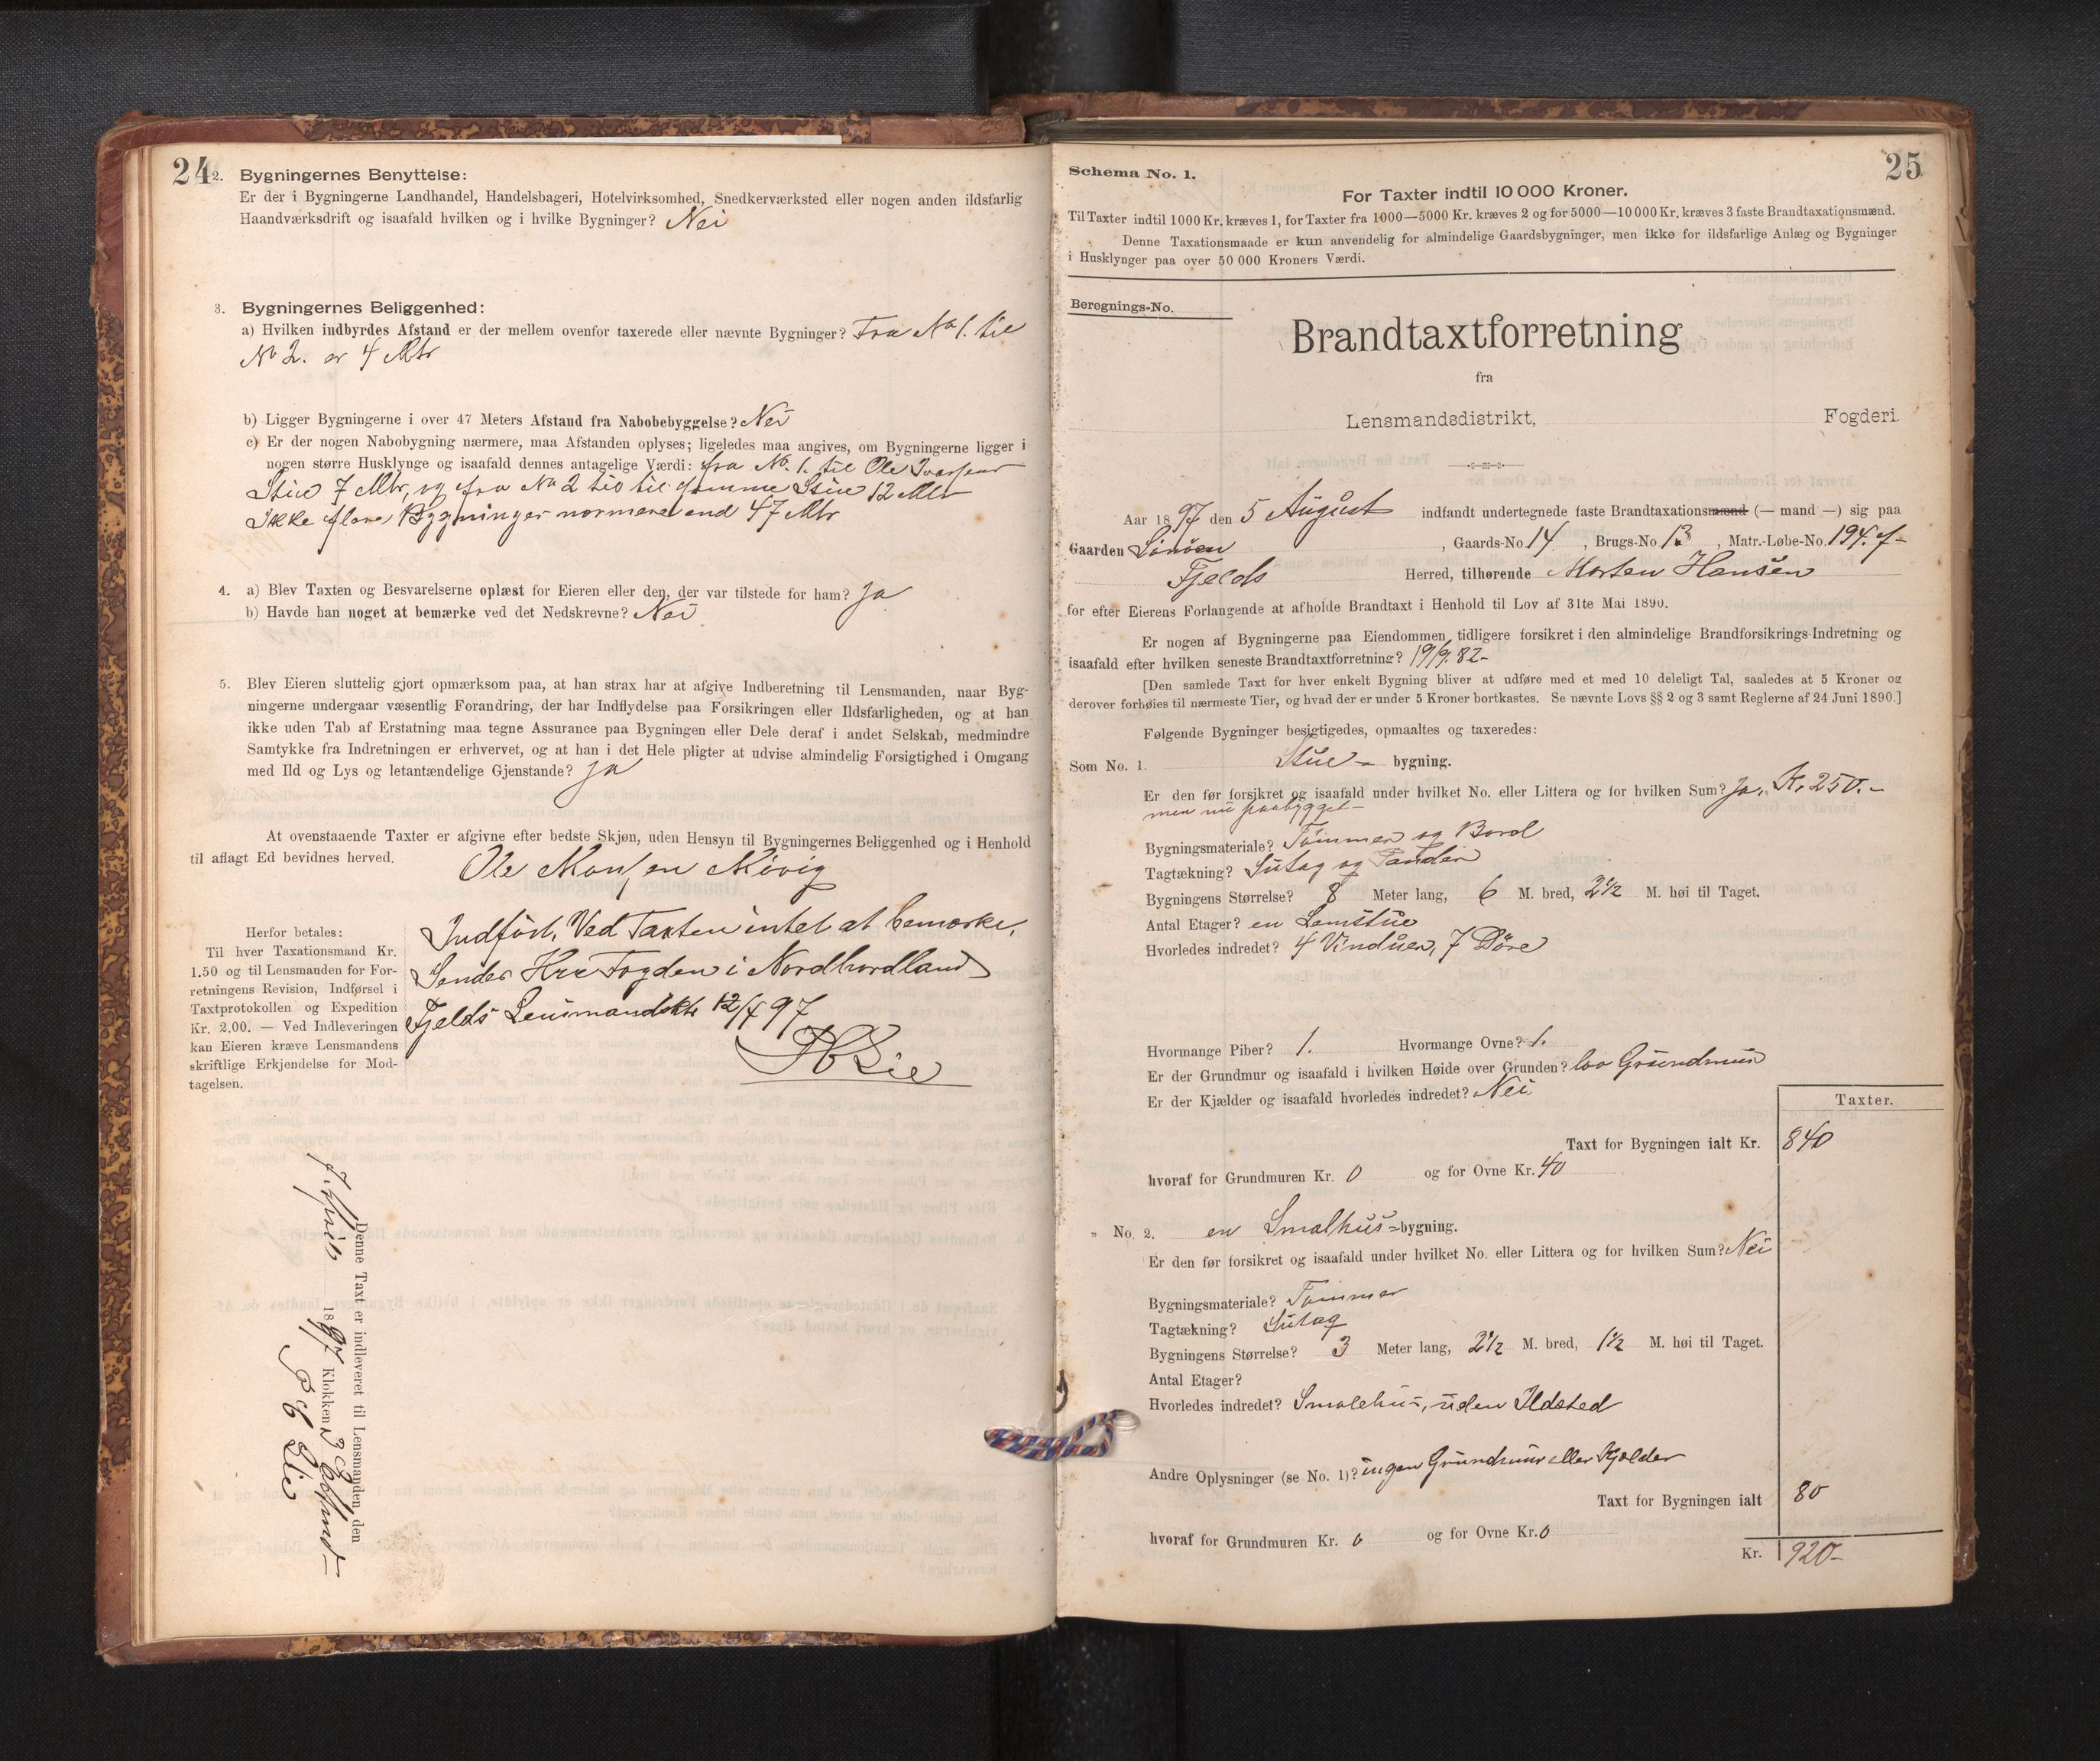 24
2. Bygningernes Benyttelse:
Er der i Bygningerne Landhandel, Handelsbageri, Hotelvirksomhed, Snedkerværksted eller nogen anden ildsfarlig
Haandværksdrift og isaafald hvilken og i hvilke Bygninger? Nei
3. Bygningernes Beliggenhed:
a) Hvilken indbyrdes Afstand er der mellem ovenfor taxerede eller nævnte Bygninger? Fra No 1. til
No 2. er 4 Mtr
b) Ligger Bygningerne i over 47 Meters Afstand fra Nabobebyggelse? Nei
c) Er der nogen Nabobygning nærmere, maa Afstanden oplyses; ligeledes maa angives, om Bygningerne ligger i
nogen større Husklynge og isaafald dennes antagelige Værdi: fra No. 1. til Ole
Stue 7 Mtr, og fra No 2 til samme Stue 12 Mtr
Ikke flere Bygninger nærmere end 47 Mtr
4. a) Blev Taxten og Besvarelserne oplæst for Eieren eller den, der var tilstede for ham? Ja
b) Havde han noget at bemærke ved det Nedskrevne? Nei
5. Blev Eieren sluttelig gjort opmærksom paa, at han strax har at afgive Indberetning til Lensmanden, naar Byg-
ningerne undergaar væsentlig Forandring, der har Indflydelse paa Forsikringen eller Ildsfarligheden, og at han
ikke uden Tab af Erstatning maa tegne Assurance paa Bygningen eller Dele deraf i andet Selskab, medmindre
Samtykke fra Indretningen er erhvervet, og at han i det Hele pligter at udvise almindelig Forsigtighed i Omgang
med Ild og Lys og letantændelige Gjenstande? Ja
At ovenstaaende Taxter er afgivne efter bedste Skjøn, uden Hensyn til Bygningernes Beliggenhed og i Henhold
til aflagt Ed bevidnes herved.
Ole Monsen
Herfor betales:
Til hver Taxationsmand Kr.
1.50 og til Lensmanden for For-
retningens Revision, Indførsel i
Taxtprotokollen og Expedition
Kr. 2.00. — Ved Indleveringen
kan Eieren kræve Lensmandens
skriftlige Erkjendelse for Mod-
tagelsen.
Indført, Ved Taxten intet at bemærke.
Sendes Hrr Fogden i Nordhordland
Fjelds Lensmandsktr 12/4 97
Lie
Denne Taxt er indleveret til Lensmanden, den
1897 Klokken 3
Lie
25
Schema No. 1.
For Taxter indtil 10 000 Kroner.
Til Taxter indtil 1000 Kr. kræves 1, for Taxter fra 1000—5000 Kr. kræves 2 og for 5000—10000 Kr. kræves 3 faste Brandtaxationsmænd.
Denne Taxationsmaade er kun anvendelig for almindelige Gaardsbygninger, men ikke for ildsfarlige Anlæg og Bygninger
i Husklynger paa over 50 000 Kroners Værdi.
Beregnings-No.
Brandtaxtforretning
fra
Lensmandsdistrikt, Fogderi.
Aar 1897 den 5 August indfandt undertegnede faste Brandtaxationsmænd (— mand —) sig paa
Gaarden , Gaards-No 14 , Brugs-No 13 , Matr.-Løbe-No. 194. f-
Fjelds Herred, tilhørende Morten Hansen
for efter Eierens Forlangende at afholde Brandtaxt i Henhold til Lov af 31te Mai 1890.
Er nogen af Bygningerne paa Eiendommen tidligere forsikret i den almindelige Brandforsikrings-Indretning og
isaafald efter hvilken seneste Brandtaxtforretning? 19/9. 82-
[Den samlede Taxt for hver enkelt Bygning bliver at udføre med et med 10 deleligt Tal, saaledes at 5 Kroner og
derover forhøies til nærmeste Tier, og hvad der er under 5 Kroner bortkastes. Se nævnte Lovs §§ 2 og 3 samt Reglerne af 24 Juni 1890.]
Følgende Bygninger besigtigedes, opmaaltes og taxeredes:
Som No. 1. Stue- bygning.
Er den før forsikret og isaafald under hvilket No. eller Littera og for hvilken Sum? Ja, Kr 250.-
men nu paabygget-
Bygningsmateriale? Tømmer og Bord
Tagtækning? Sutag og Pander
Bygningens Størrelse? 8 Meter lang, 6 M. bred, 2½ M. høi til Taget.
Antal Etager? en Lemstue
Hvorledes indredet? 4 Vinduer, 7 Døre
Hvormange Piber? 1. Hvormange Ovne? 1.
Er der Grundmur og isaafald i hvilken Høide over Grunden? lav Grundmur
Er der Kjælder og isaafald hvorledes indredet? Nei
Taxter.
Taxt for Bygningen ialt Kr. 840
hvoraf for Grundmuren Kr. 0 og for Ovne Kr. 40
" No. 2. en Smalhus-bygning.
Er den før forsikret og isaafald under hvilket No. eller Littera og for hvilken Sum? Nei
Bygningsmateriale? Tømmer
Tagtækning? Sutag
Bygningens Størrelse? 3 Meter lang, 2½ M. bred, 1½ M. høi til Taget.
Antal Etager?
Hvorledes indredet? Smalehus, uden Ildsted
Andre Oplysninger (se No. 1)? ingen Grundmur eller Kjælder
Taxt for Bygningen ialt 80
hvoraf for Grundmuren Kr. 0 og for Ovne Kr. 0
Kr. 920-